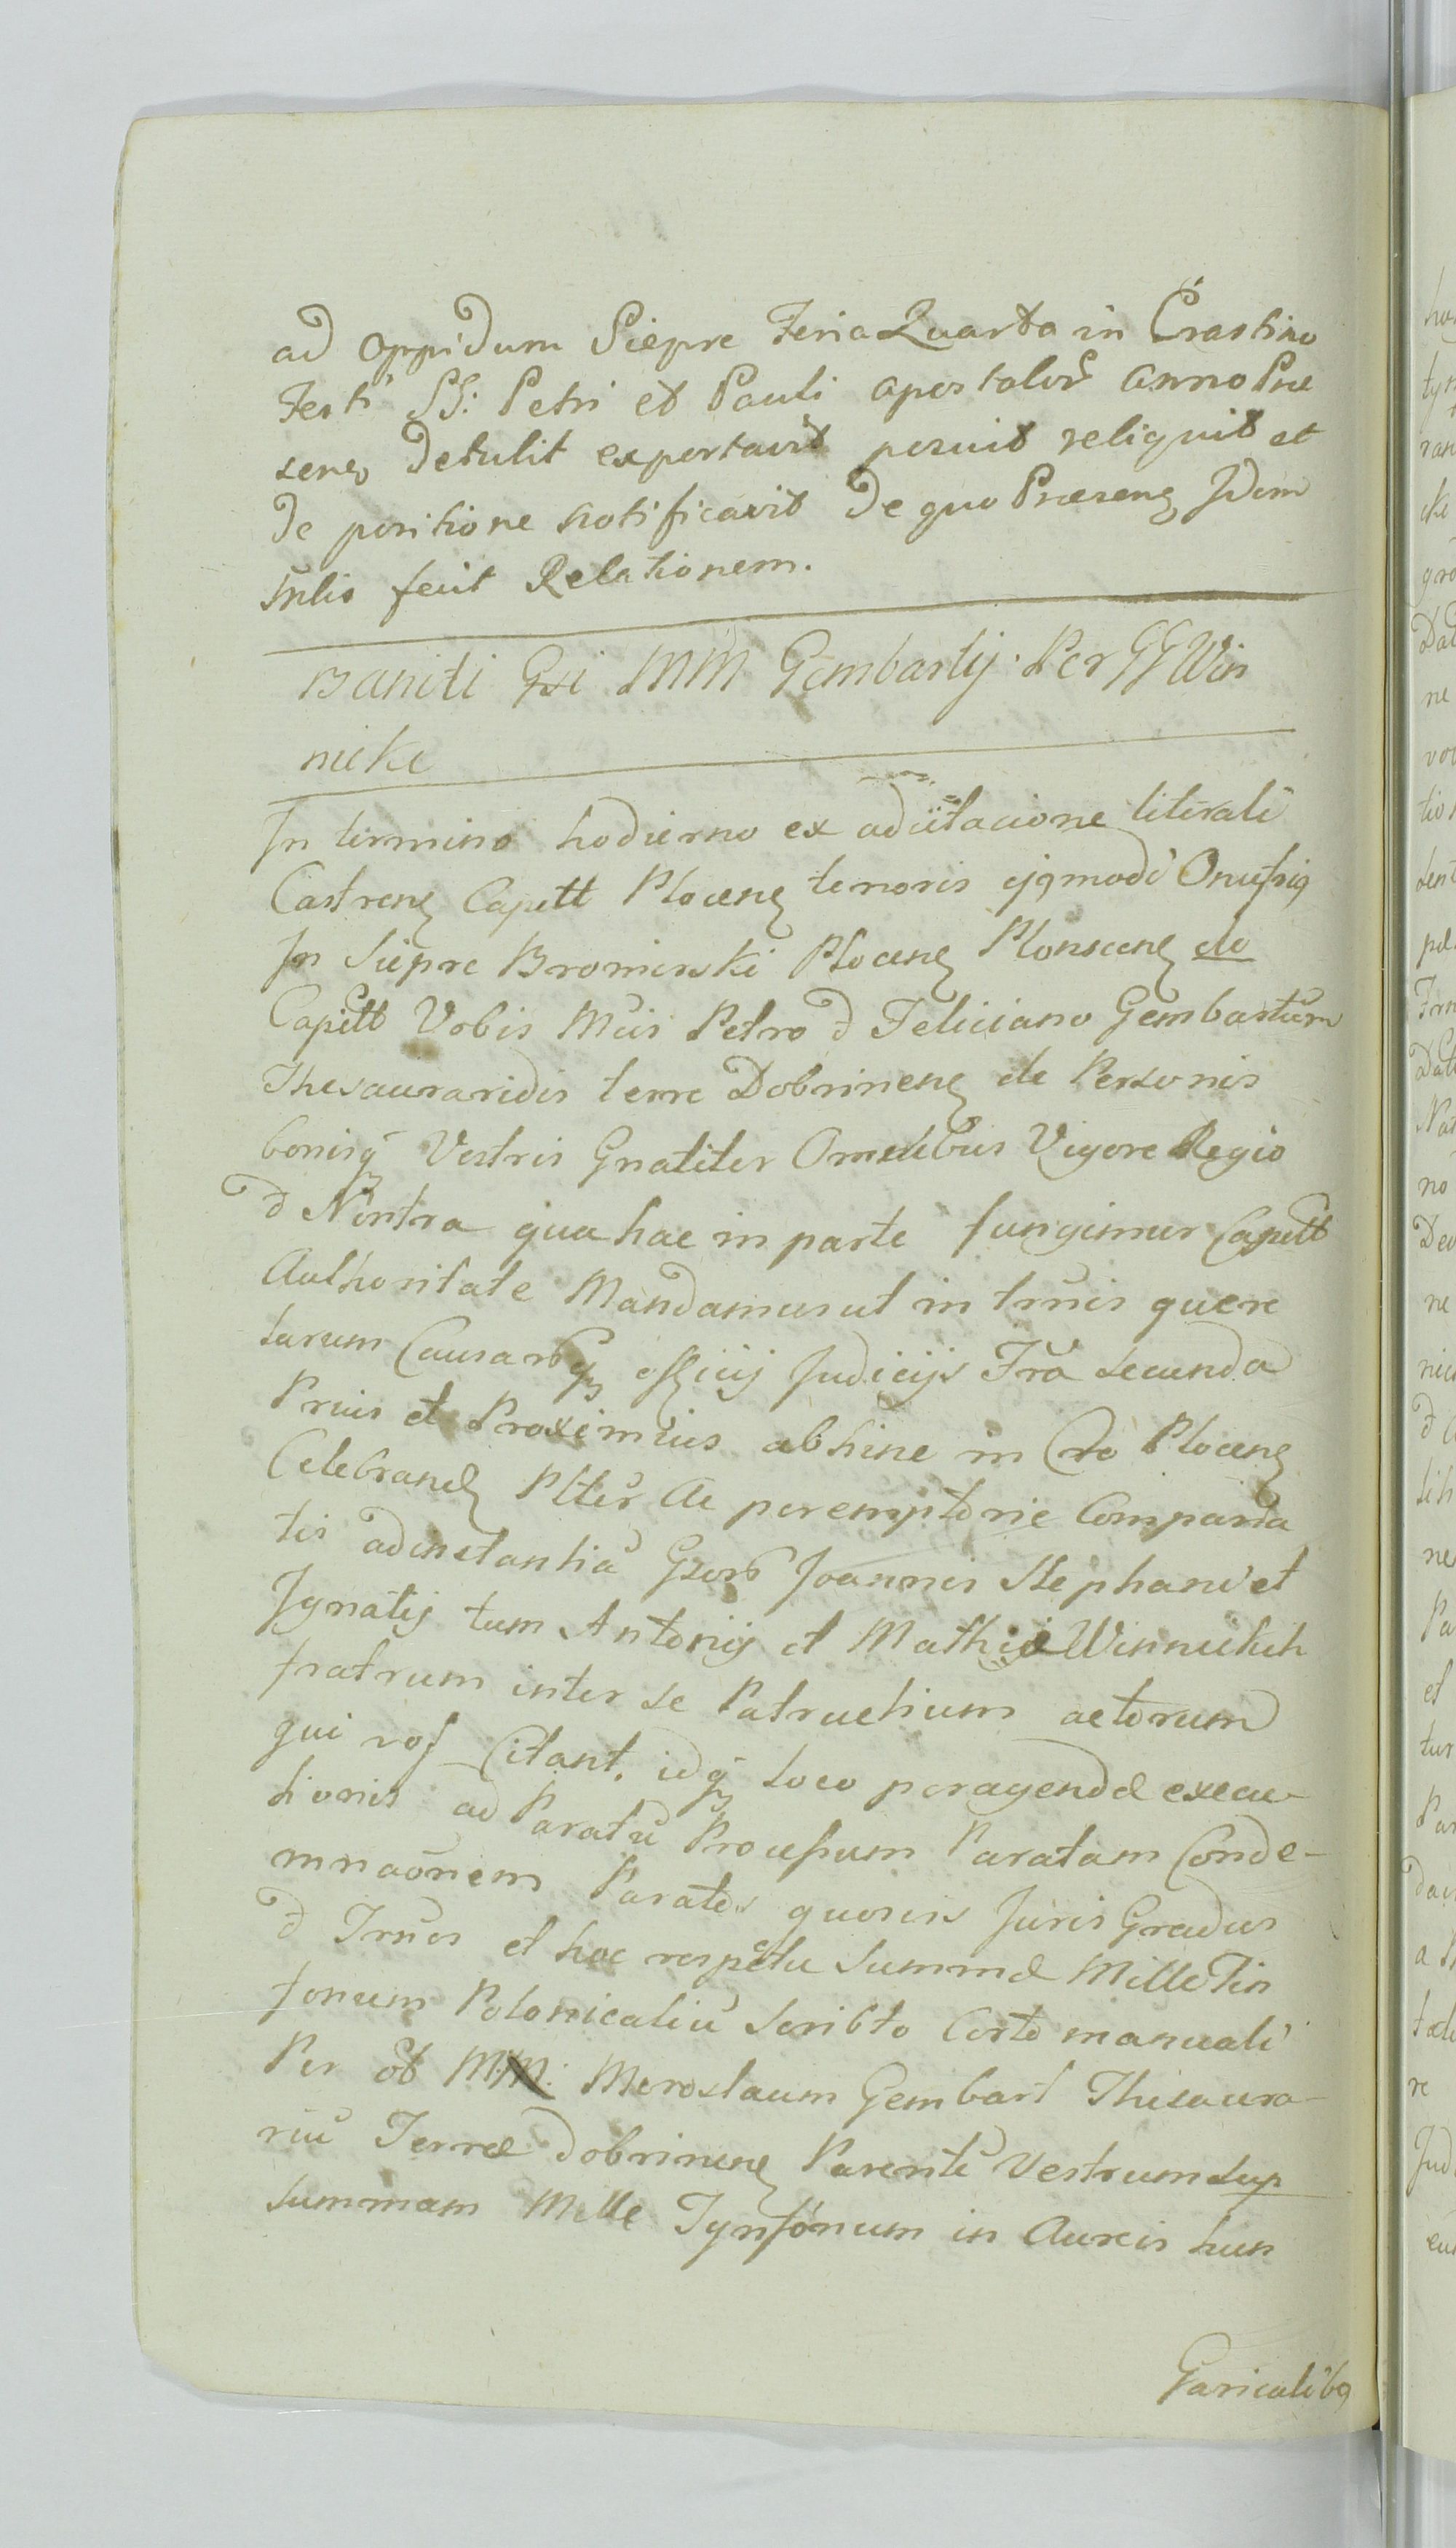 ad oppidum Siepre Feria Quarta in Crastino
Festi SS: Petri et Pauli apostolor anno Prae
senҽ detulit exportavit posuit reliquit et
de positione notificavit de quo Praesenҽ Idem
feut Relationem.
Baniti Gsi MM Gembarty Per GG Win
nicke
In termino hodierno ex adcitacione literali
Castrenҽ Capett Plocenҽ tenoris ejqmodi Onufrig
In Siepre Bromirski Plocenҽ Plonscenҽ do
Capett Vobis Mcis Petro d Feliciano Gembartum
Thesauraridis terre Dobrinenҽ de Personis
bonisq Vestris Gnaliter Omnibus Vigore Regio
d Nostra qua hac in parte fungimur Capett
Authoritate Mandamus ut in trnis quere
larum Causarq officij Judicijs Fra secunda
Prius et Proximius abhinc in Cro Plocenҽ
Celebrandҽ Plter Ac peremptorie Comparea
tis ad instantia Gsorū Joannis Stephani et
Ignatij tum Antonij et Mathiæ Winnickich
fratrum inter se Patruelium actorum
qui vos Citant. idq loco peragendæ execu-
tionis ad Paratū Processum Paratam Conde-
mnaōnem Paratos quosvis Juris Gradus
d Trnos et hoc respectu Summæ Mille Tin
fonum Polonicaliū Scribto Certo manuali
Per ol MM: Meroslaum Gembart Thesaura-
riū Terræ Dobrinenҽ Parentē Vestrum sup
summam Mille Tynfonum in Aureis hun
Garicalibq